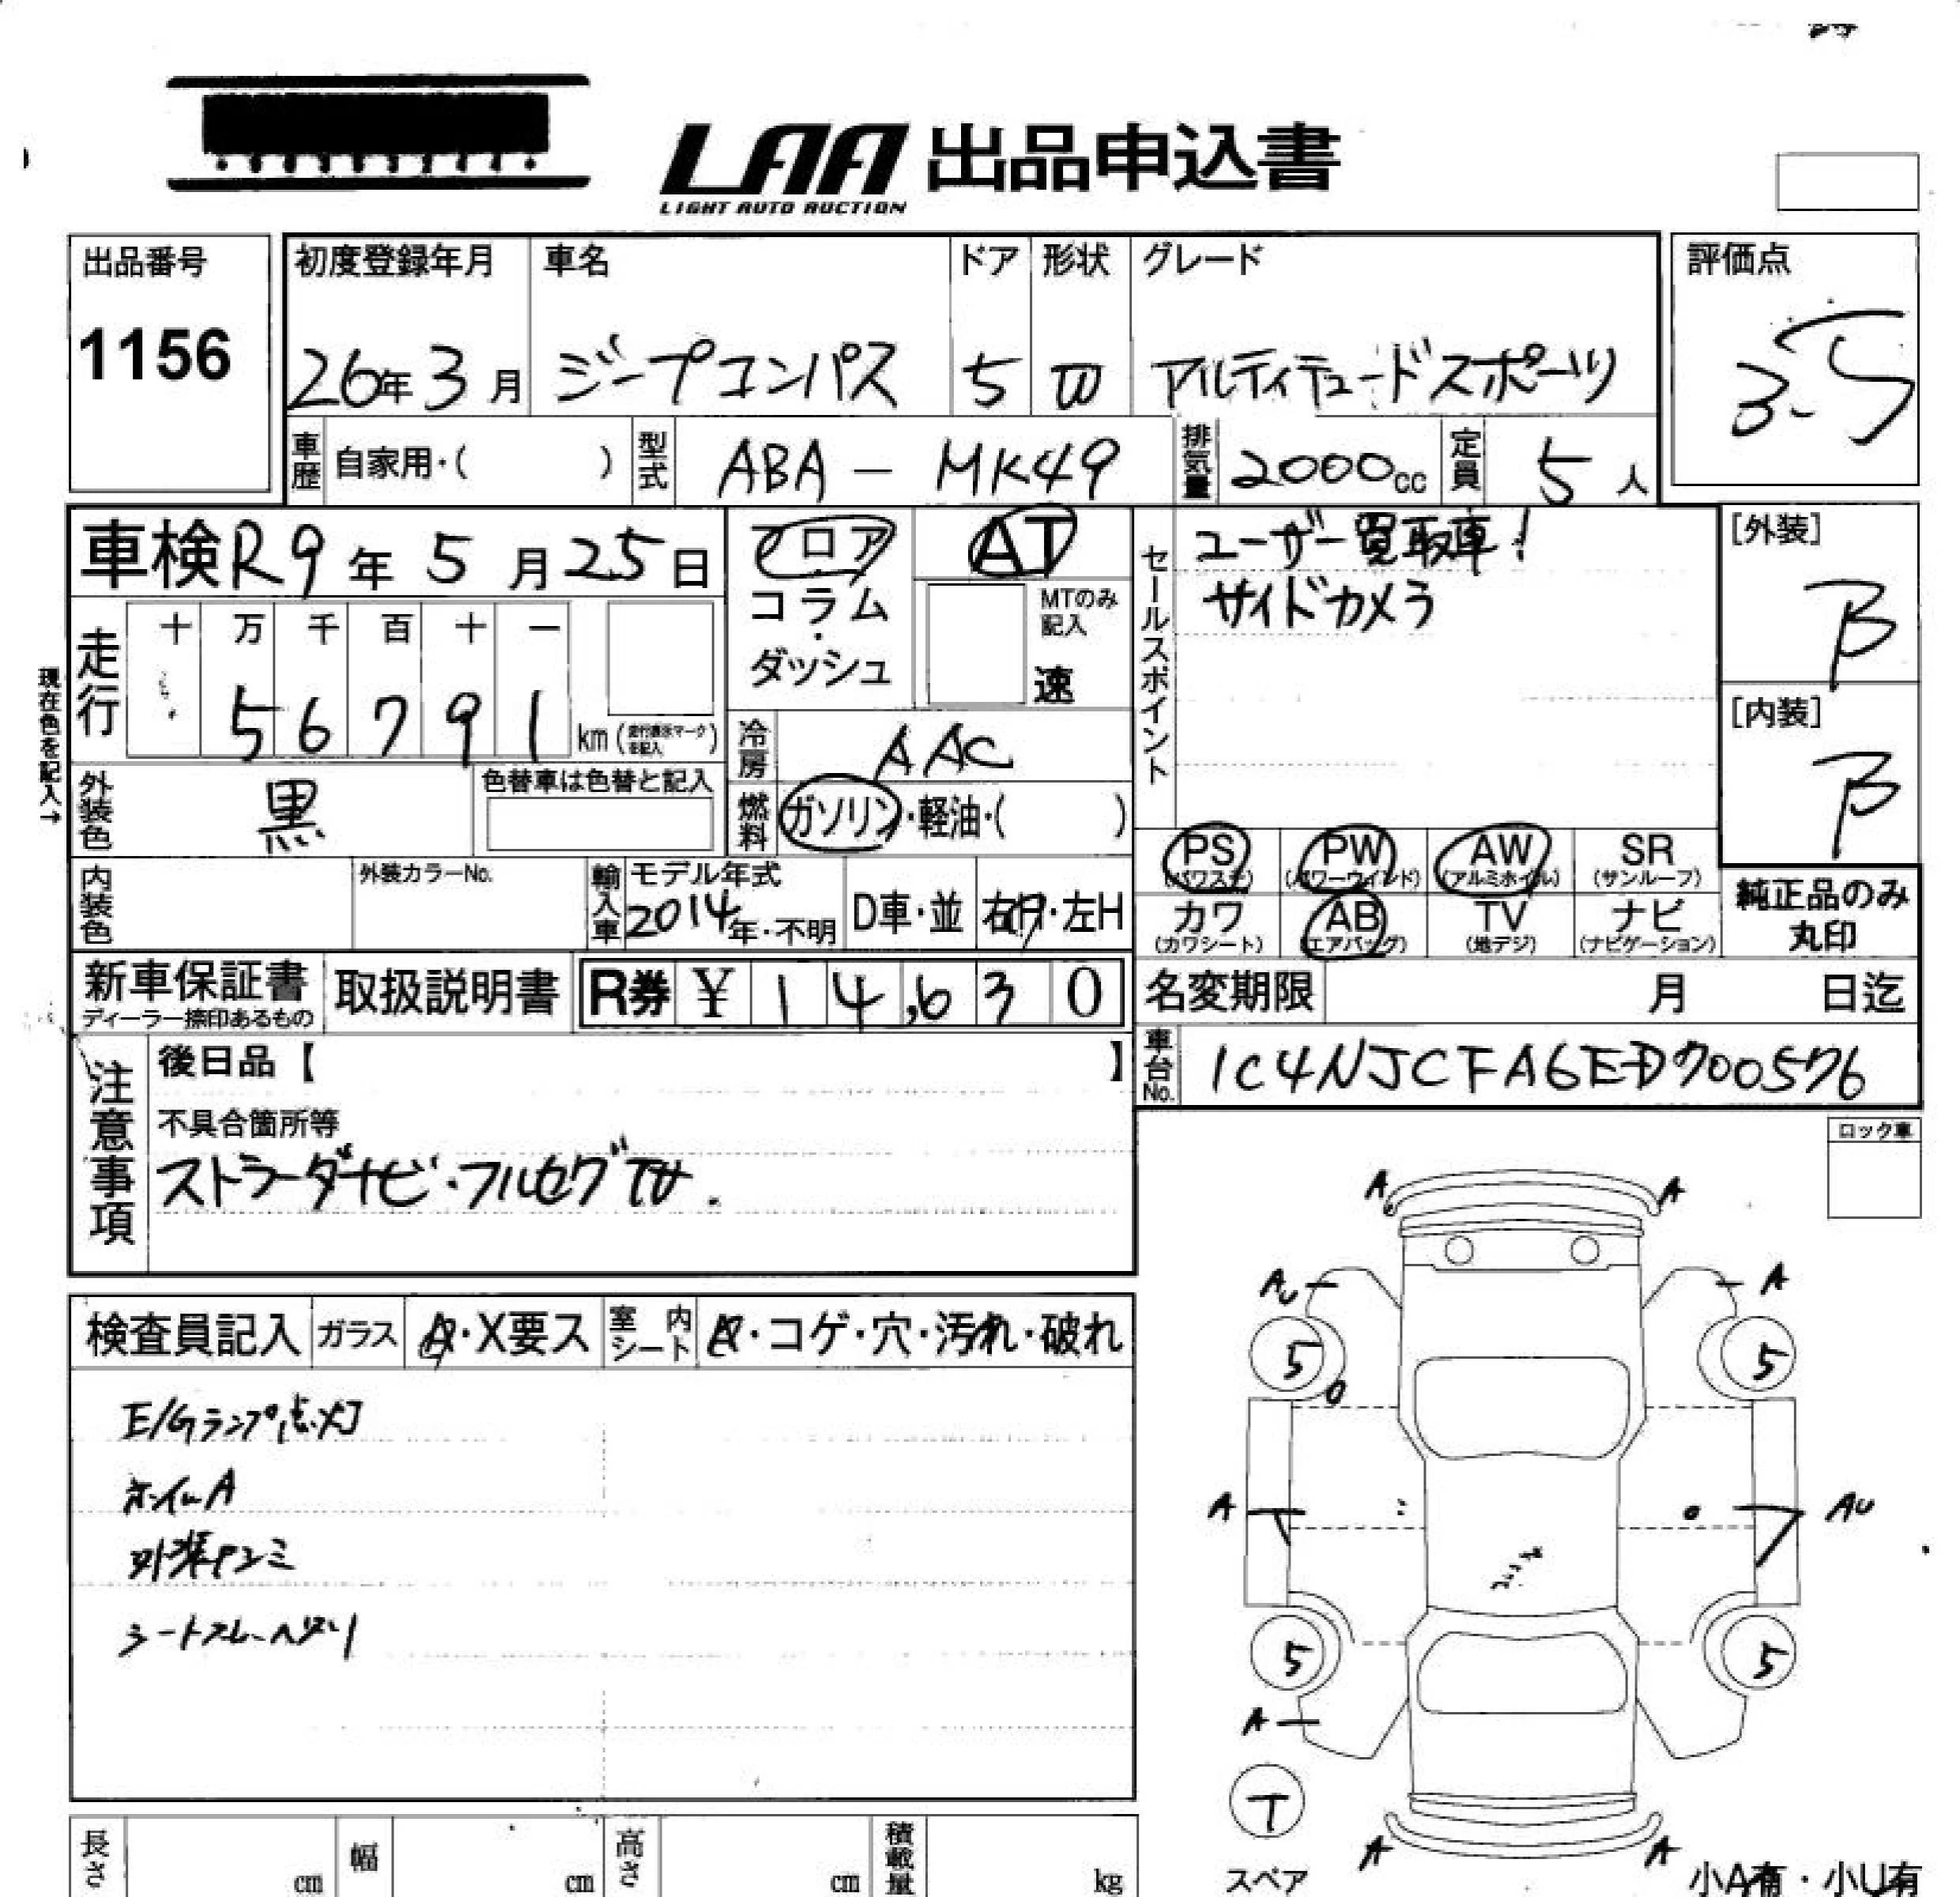 LAA 出品申込書
LIGHT AUTO AUCTION
出品番号
1156
初度登録年月
26年3月
車名
ジープコンパス
ドア
5
形状
W
グレード
アルティテュードスポーツ
評価点
3.5
車歴 自家用・( )
型式 ABA - MK49
排気量 2000cc
定員 5人
車検 R9年5月25日
フロア
コラム
・
ダッシュ
AT
MTのみ記入
速
セールスポイント
ユーザー買取車!
サイドカメラ
[外装]
B
[内装]
B
現在色を記入→
走行
十 万 千 百 十 一
5 6 7 9 1 km (走行表示マークを記入)
冷房 AAC
外装色 黒
色替車は色替と記入
燃料 ガソリン・軽油・( )
内装色
外装カラーNo.
輸入車
モデル年式
2014年・不明
D車・並
右H・左H
PS (パワステ)
PW (パワーウインド)
AW (アルミホイル)
SR (サンルーフ)
カワ (カワシート)
AB (エアバッグ)
TV (地デジ)
ナビ (ナビゲーション)
純正品のみ
丸印
新車保証書
ディーラー捺印あるもの
取扱説明書
R券 ¥ 14,630
名変期限 月 日迄
車台No. 1C4NJCFA6ED700576
注意事項
後日品【 】
不具合箇所等
ストラーダナビ・フルセグTV.
ロック車
検査員記入
ガラス A・X要ス
室内シート A・コゲ・穴・汚れ・破れ
E/Gランプ点灯
ホイルA
外装キズミ
シートスレ・ヘタリ
A A
AU A
5 5
A AU
5 5
A
T
スペア
A A
小A有・小U有
長さ cm
幅 cm
高さ cm
積載量 kg